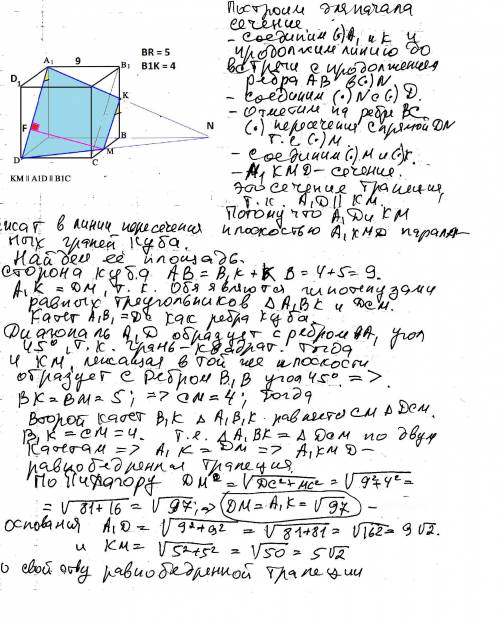 Построим для начала
сечение
- соединим (·) A₁ и K и
продолжим линию до
встречи с продолжением
ребра AB в (·) N
- соединим (·) N с (·) D.
- Отметим на ребре BC
(·) пересечения с прямой DN
т.е (·) M.
- соединим (·) M и (·) K.
- A₁KMD - сечение.
Это сечение трапеция,
т.к. A₁D ∥ KM.
Потому что A₁D и KM
A1
9
B1
BR = 5
B1K = 4
D1
K
F
B
N
D
C
M
KM || A1D || B1C
лежат в линии пересечения плоскостью A₁KMD паралл
ных граней куба.
Найдем ее площадь.
сторона куба AB = B₁K + KB = 4+5 = 9.
A₁K = DM, т.к. Оба являются гипотенузами
равных треугольников Δ A₁BK и DCM.
Катет A₁B₁ = DC как ребра куба.
Диагональ A₁D образует с ребром AA₁ угол
45°, т.к. грань - квадрат. Тогда
и KM, лежащая в той же плоскости
образует с ребром B₁B угол 45° =>.
BK = BM = 5; => CM = 4; Тогда
Второй катет B₁K Δ A₁B₁K равняется CM Δ DCM.
B₁K = CM = 4. т.е. Δ A₁BK = Δ DCM по двум
катетам => A₁K = DM => A₁KMD -
равнобедренная трапеция.
По Пифагору DM = √DC²+MC² = √9²+4² =
= √81+16 = √97; => DM = A₁K = √97
основания A₁D = √9²+9² = √81+81 = √162 = 9√2.
и KM = √5²+5² = √50 = 5√2
о свойству равнобедренной трапеции